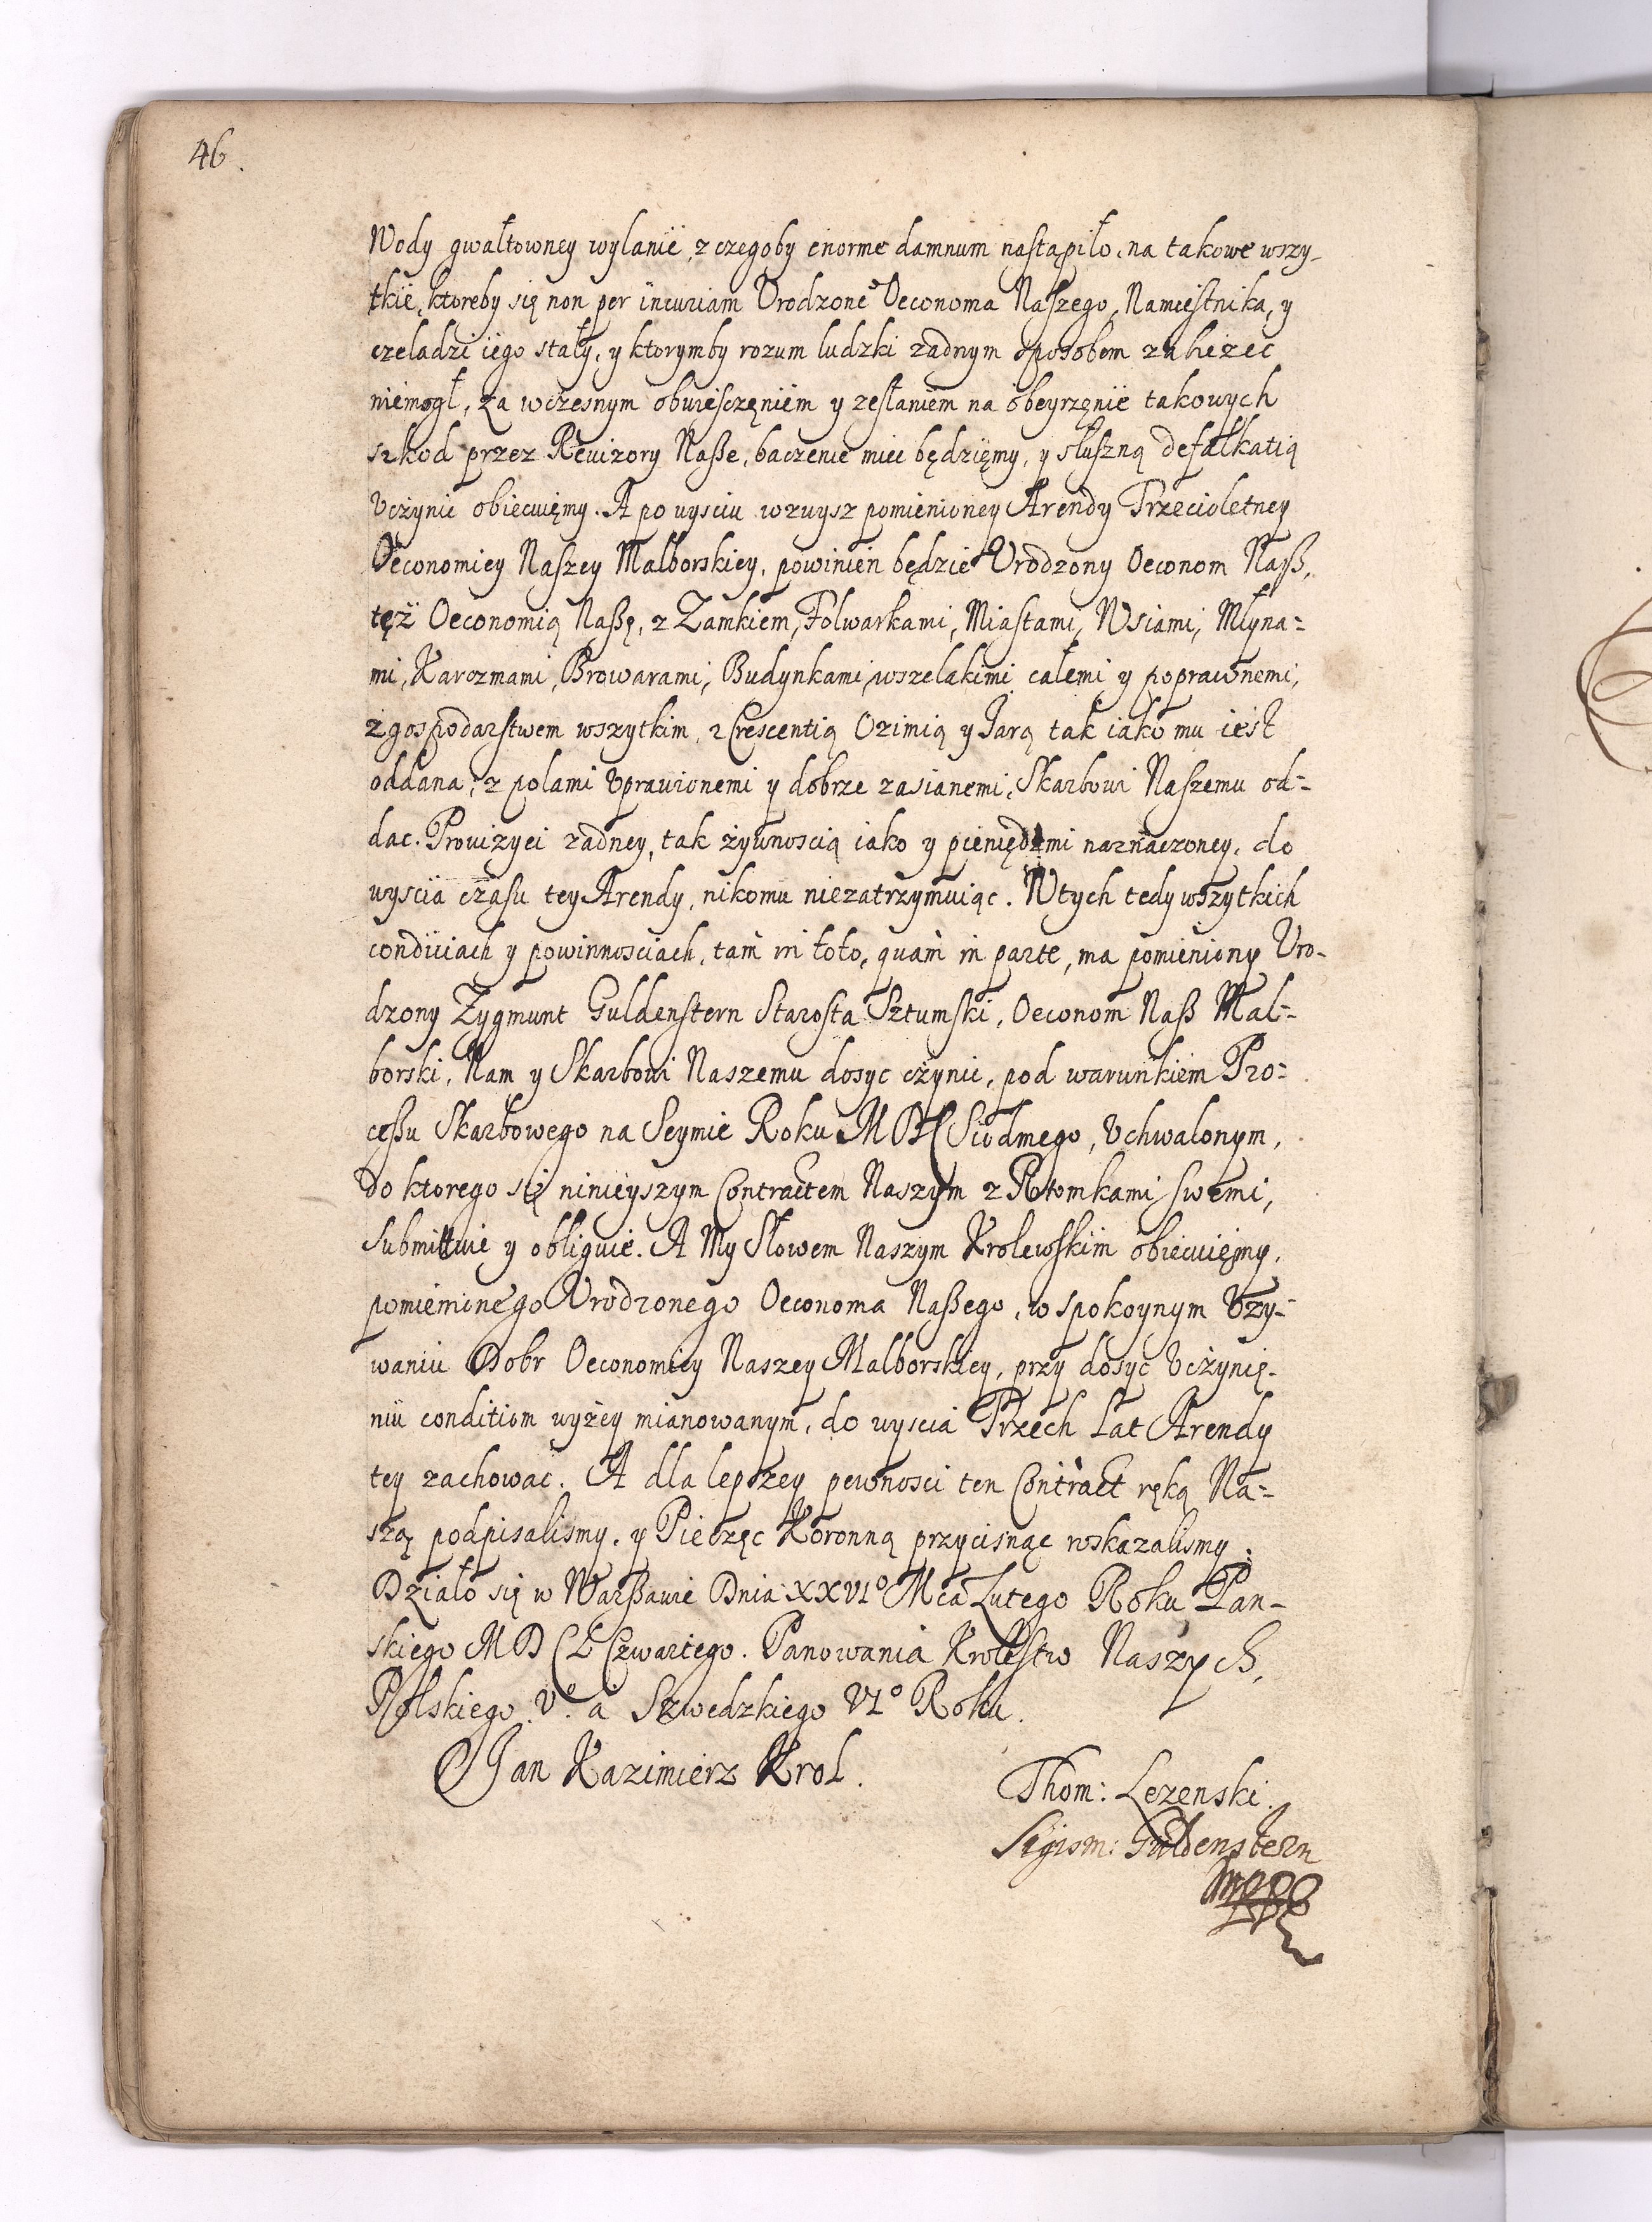 46.
Wody gwałtowney wylanie, z czegoby enorme damnum nastąpiło, na takowe wszy-
tkie, ktoreby się non per incuriam Vrodzone° Oeconoma Naszego, Namiestnika, y
czeladzi iego stały, y ktorymby rozum ludzki zadnym sposobem zabiezec
niemogł, za wczesnym obwiesczęniem y zesłaniem na obeyrzęnie takowych
szkod przez Rewizory Naße, baczenie miec będzięmy, y słuszną defalkatią
Vczynic obiecuięmy. A po wysciu wzwysz pomienioney Arendy Trzecioletney
Oeconomiey Naszey Malborskiey, powinien będzie Vrodzony Oeconom Naß,
tęż Oeconomią Naßę, z Zamkiem, Folwarkami, Miastami, Wsiami, Młyna=
mi, Karczmami, Browarami, Budynkami, wszelakimi całemi y poprawnemi,
z gospodarstwem wszytkim, z Crescentią Ozimią y Jarą tak iako mu iest
oddana, z polami Vprawionemi y dobrze zasianemi, Skarbowi Naszemu od=
dac. Prouizyei zadney, tak żywnoscią iako y pieniędzmi naznaczoney, do
wyscia czasu tey Arendy, nikomu niezatrzymuiąc. W tych tedy wszytkich
condiciach y powinnosciach, tam in toto, quam in parte, ma pomieniony Vro-
dzony Zygmunt Guldenstern Starosta Sztumski, Oeconom Naß Mal=
borski, Nam y Skarbowi Naszemu dosyc czynic, pod warunkiem Pro=
ceßu Skarbowego na Seymie Roku MDC Siodmego, Vchwalonym,
do ktorego się ninieyszym Contractem Naszym z Potomkami swemi,
submittuie y obliguie. A My Słowem Naszym Krolewskim obiecuięmy,
pomieninego Vrodzonego Oeconoma Naßego, w spokoynym Vzy=
waniu Dobr Oeconomiey Naszey Malborskiey, przy dosyc Vczynię-
niu conditiom wyżey mianowanym, do wyscia Trzech Lat Arendy
tey zachowac. A dla lepszey pewnosci ten Contract ręką Na=
szą podpisalismy, y Pieczęc Koronną przycisnąc roskazalismy.
Działo się w Warßawie Dnia XXVI° Mca Lutego Roku Pan-
skiego MDCL Czwartego. Panowania Krolestw Naszych,
Polskiego V° a Szwedzkiego VI° Roku.
Jan Kazimierz Krol.
Thom: Lezenski.
Sigism: Guldenstern